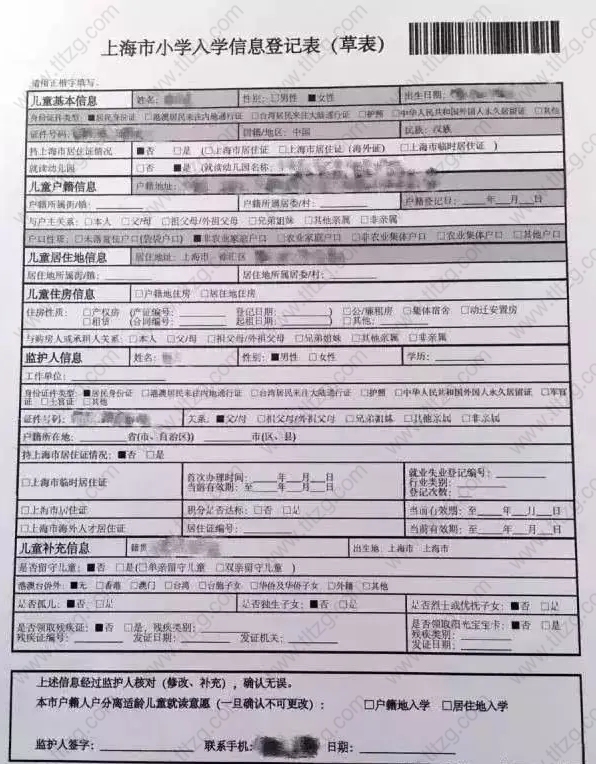 上海市小学入学信息登记表（草表）
请用正楷字填写。
儿童基本信息 姓名: 性别: □男性 ■女性 出生日期:
身份证件类型: ■居民身份证 □港澳居民来往内地通行证 □台湾居民来往大陆通行证 □护照 □中华人民共和国外国人永久居留证 □其他
证件号码: 国籍/地区: 中国 民族: 汉族
持上海市居住证情况 ■否 □是 (□上海市居住证 □上海市居住证（海外证） □上海市临时居住证 )
就读幼儿园 □否 ■是 (就读幼儿园名称:
儿童户籍信息 户籍地址:
户籍所属街/镇: 户籍所属居委/村: 户籍登记日: 年 月 日
与户主关系: □本人 □父/母 □祖父母/外祖父母 □兄弟姐妹 □其他亲属 □非亲属
户口性质: □未落常住户口(袋袋户口) ■非农业家庭户口 □农业家庭户口 □非农业集体户口 □农业集体户口 □其他户口
儿童居住地信息 居住地址: 上海市 徐汇区
居住地所属街/镇: 居住地所属居委/村:
儿童住房信息 □户籍地住房 □居住地住房
住房性质: □产权房 (产证编号: 登记日期: ) □公/廉租房 □集体宿舍 □动迁安置房
□租赁 (合同编号: 起租日期: ) □其他:
与购房人或承租人关系: □本人 □父/母 □祖父母/外祖父母 □兄弟姐妹 □其他亲属 □非亲属
监护人信息 姓名: 性别: ■男性 □女性 学历:
工作单位:
身份证件类型: ■居民身份证 □港澳居民来往内地通行证 □台湾居民来往大陆通行证 □护照 □中华人民共和国外国人永久居留证 □军官
证 □士官证 □其他
证件号码: 关系: ■父/母 □祖父母/外祖父母 □兄弟姐妹 □其他亲属 □非亲属
户籍所在地: 省(市、自治区)) 市(区、县)
持上海市居住证情况: ■否 □是
□上海市临时居住证 首次办理时间: 年 月 日 就业失业登记编号:
当前有效期: 至 年 月 日 行业类别:
登记次数:
□上海市居住证 积分是否达标: □否 □是 当前有效期: 至 年 月 日
□上海市海外人才居住证 居住证编号: 当前有效期: 至 年 月 日
儿童补充信息 籍贯 出生地 上海市 上海市
是否留守儿童: ■否 □是(□单亲留守儿童 □双亲留守儿童 )
港澳台侨外: ■无 □香港 □澳门 □台湾 □台胞子女 □华侨及华侨子女 □外籍 □其他
是否孤儿: ■否 □是 是否独生子女: ■否 □是 是否烈士或优抚子女: ■否 □是
是否领取残疾证: ■否 □是, 残疾类别: 是否领取阳光宝宝卡: ■否 □是
残疾证编号: 发证日期: 发证机关: 残疾类别:
发证日期:
上述信息经过监护人核对（修改、补充），确认无误。
本市户籍人户分离适龄儿童就读意愿（一旦确认不可更改）: □户籍地入学 □居住地入学
监护人签字: 联系手机: 日期:
www.tltzg.com